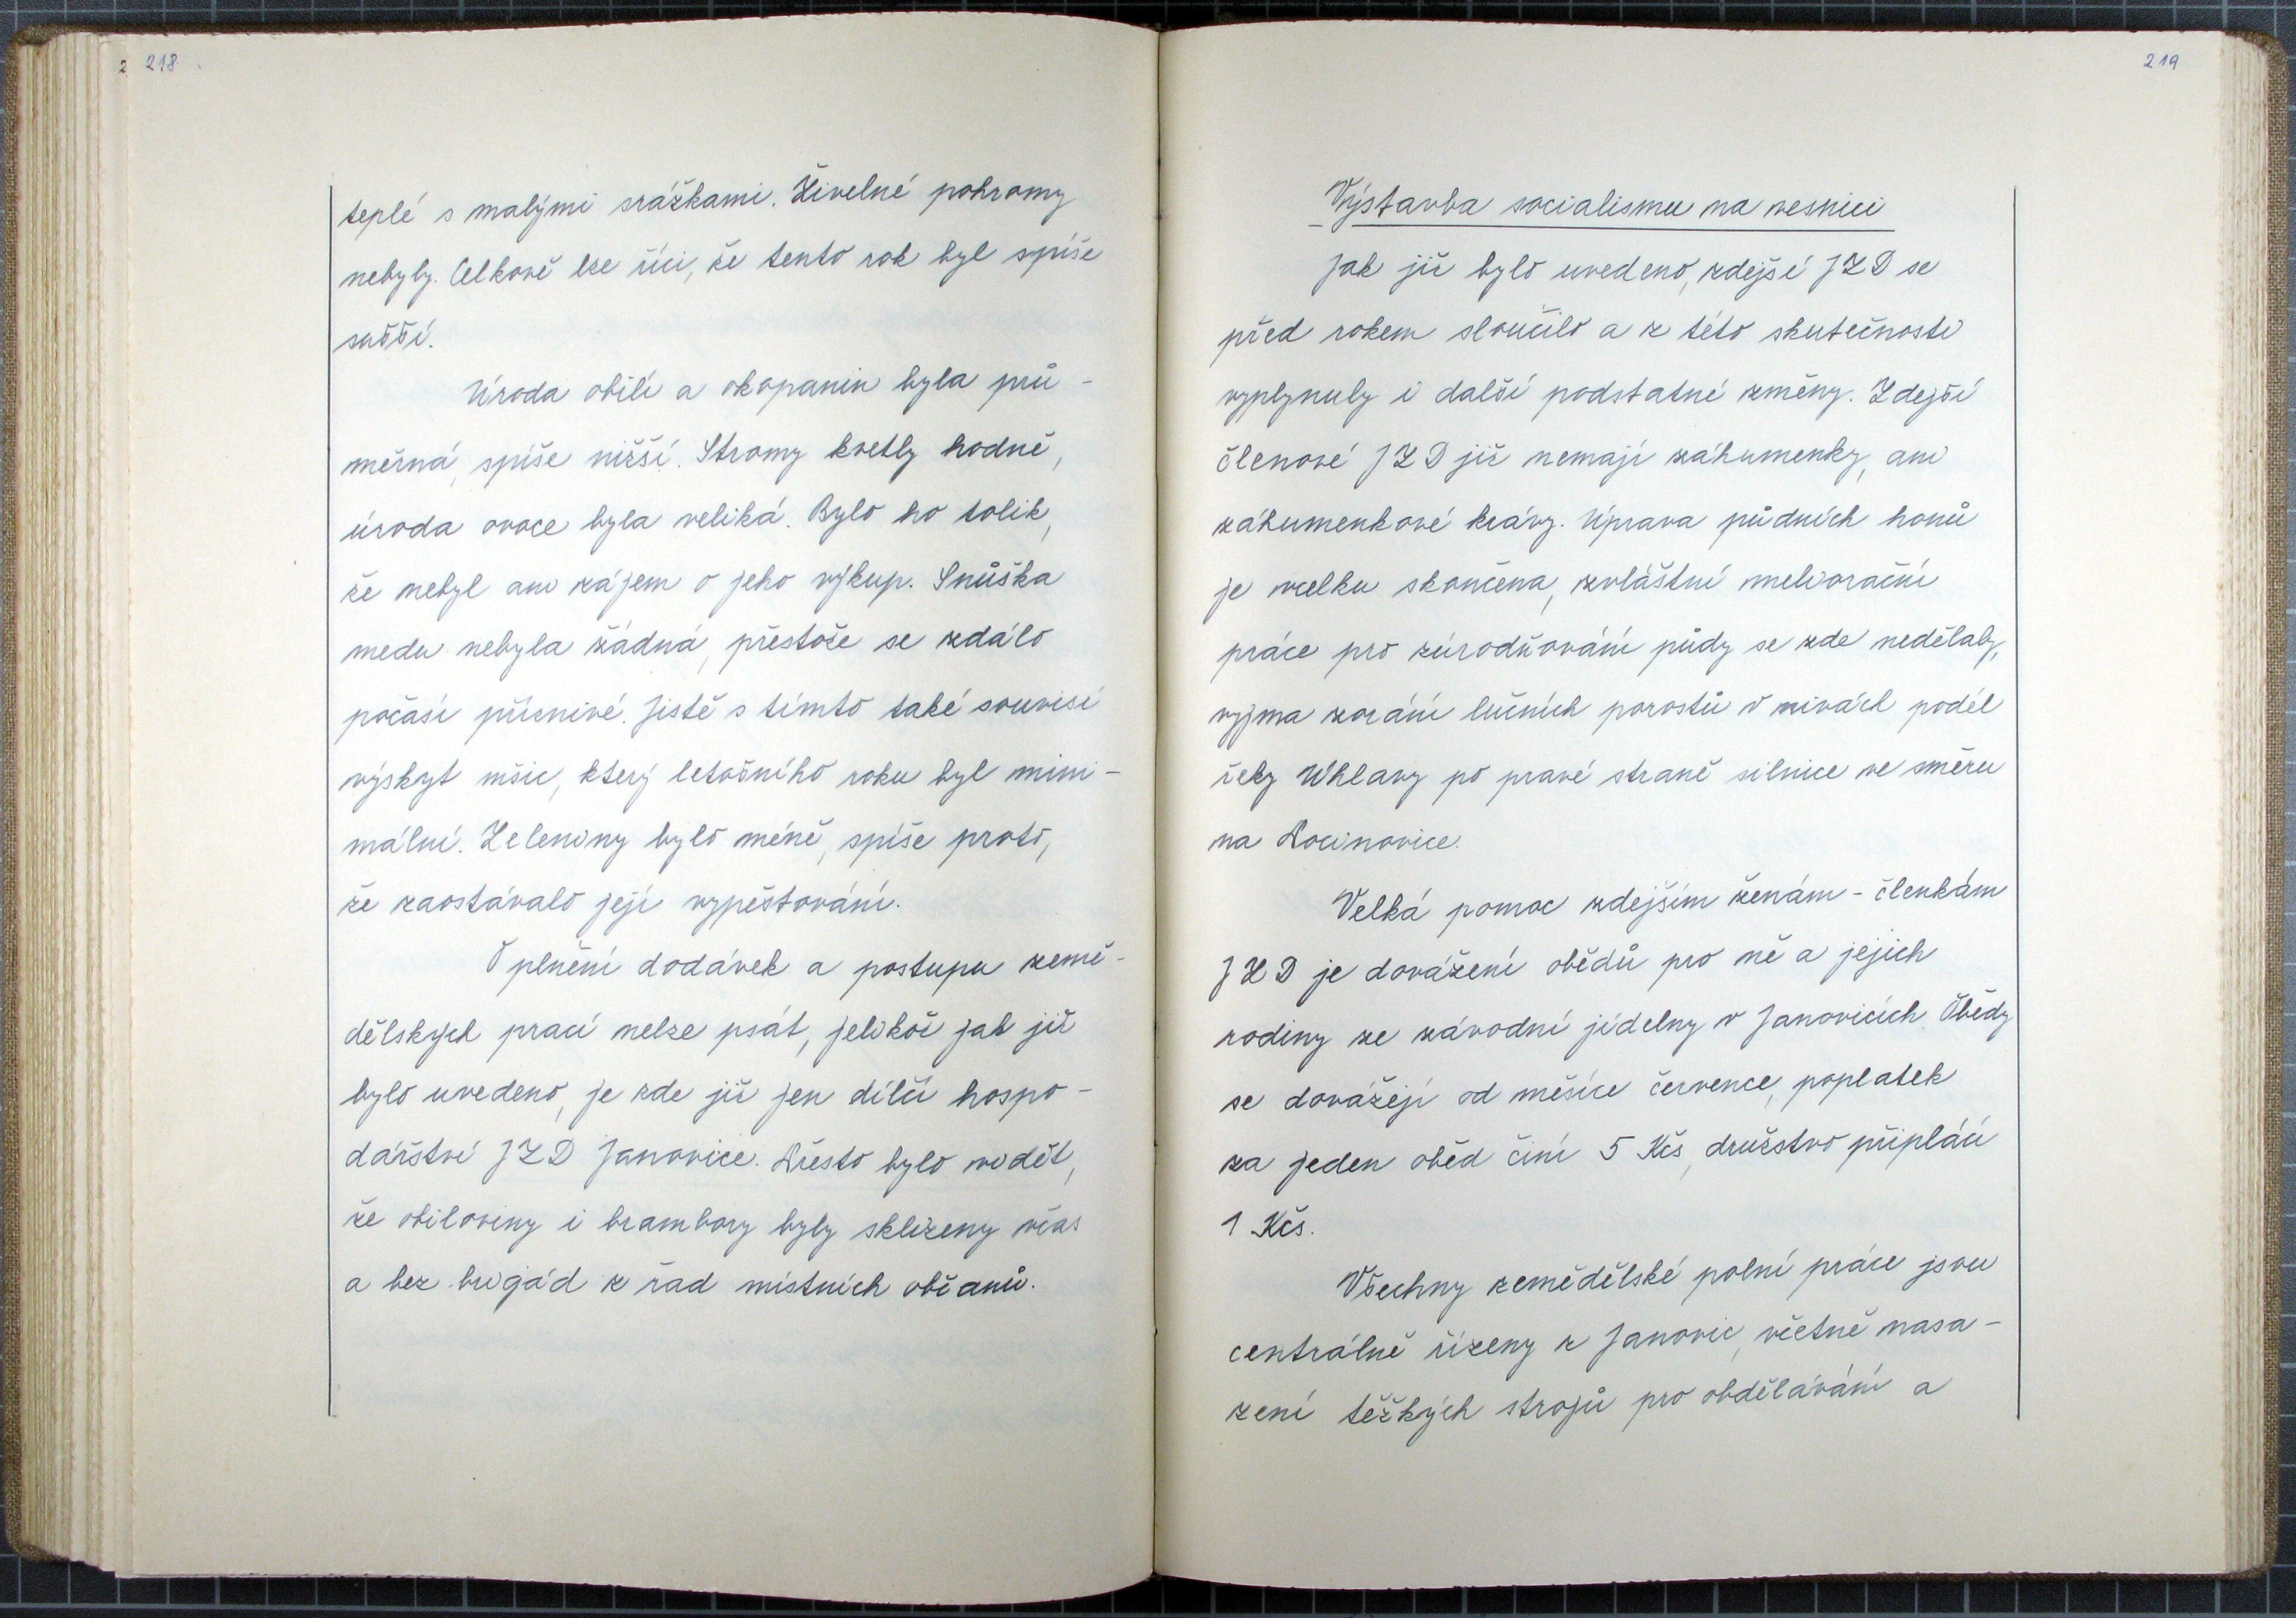 218
teplé s malými srážkami. Živelné pohromy
nebyly. Celkově lze říci, že tento rok byl spíše
sušší.
Úroda obilí a okopanin byla prů-
měrná, spíše nižší. Stromy kvetly hodně,
úroda ovoce byla veliká. Bylo ho tolik,
že nebyl ani zájem o jeho výkup. Snůška
medu nebyla žádná, přestože se zdálo
počasí příznivé. Jistě s tímto také souvisí
výskyt mšic, který letošního roku byl mini-
mální. Zeleniny bylo méně, spíše proto,
že zaostávalo její vypěstování.
O plnění dodávek a postupu země-
dělských prací nelze psát, jelikož jak již
bylo uvedeno, je zde již jen dílčí hospo-
dářství JZD Janovice. Přesto bylo vidět,
že obiloviny i brambory byly sklizeny včas
a bez brigád z řad místních občanů.
219
Výstavba socialismu na vesnici
Jak již bylo uvedeno, zdejší JZD se
před rokem sloučilo a z této skutečnosti
vyplynuly i další podstatné změny. Zdejší
členové JZD již nemají záhumenky, ani
záhumenkové krávy. Úprava půdních honů
je vcelku skončena, zvláštní meliorační
práce pro zúrodňování půdy se zde nedělaly,
vyjma zorání lučních porostů v nivách podél
řeky Úhlavy po pravé straně silnice ve směru
na Pocinovice.
Velká pomoc zdejším ženám - členkám
JZD je dovážení obědů pro ně a jejich
rodiny ze závodní jídelny v Janovicích. Obědy
se dovážejí od měsíce července, poplatek
za jeden oběd činí 5 Kčs, družstvo připlácí
1 Kčs.
Všechny zemědělské polní práce jsou
centrálně řízeny z Janovic, včetně nasa-
zení těžkých strojů pro obdělávání a